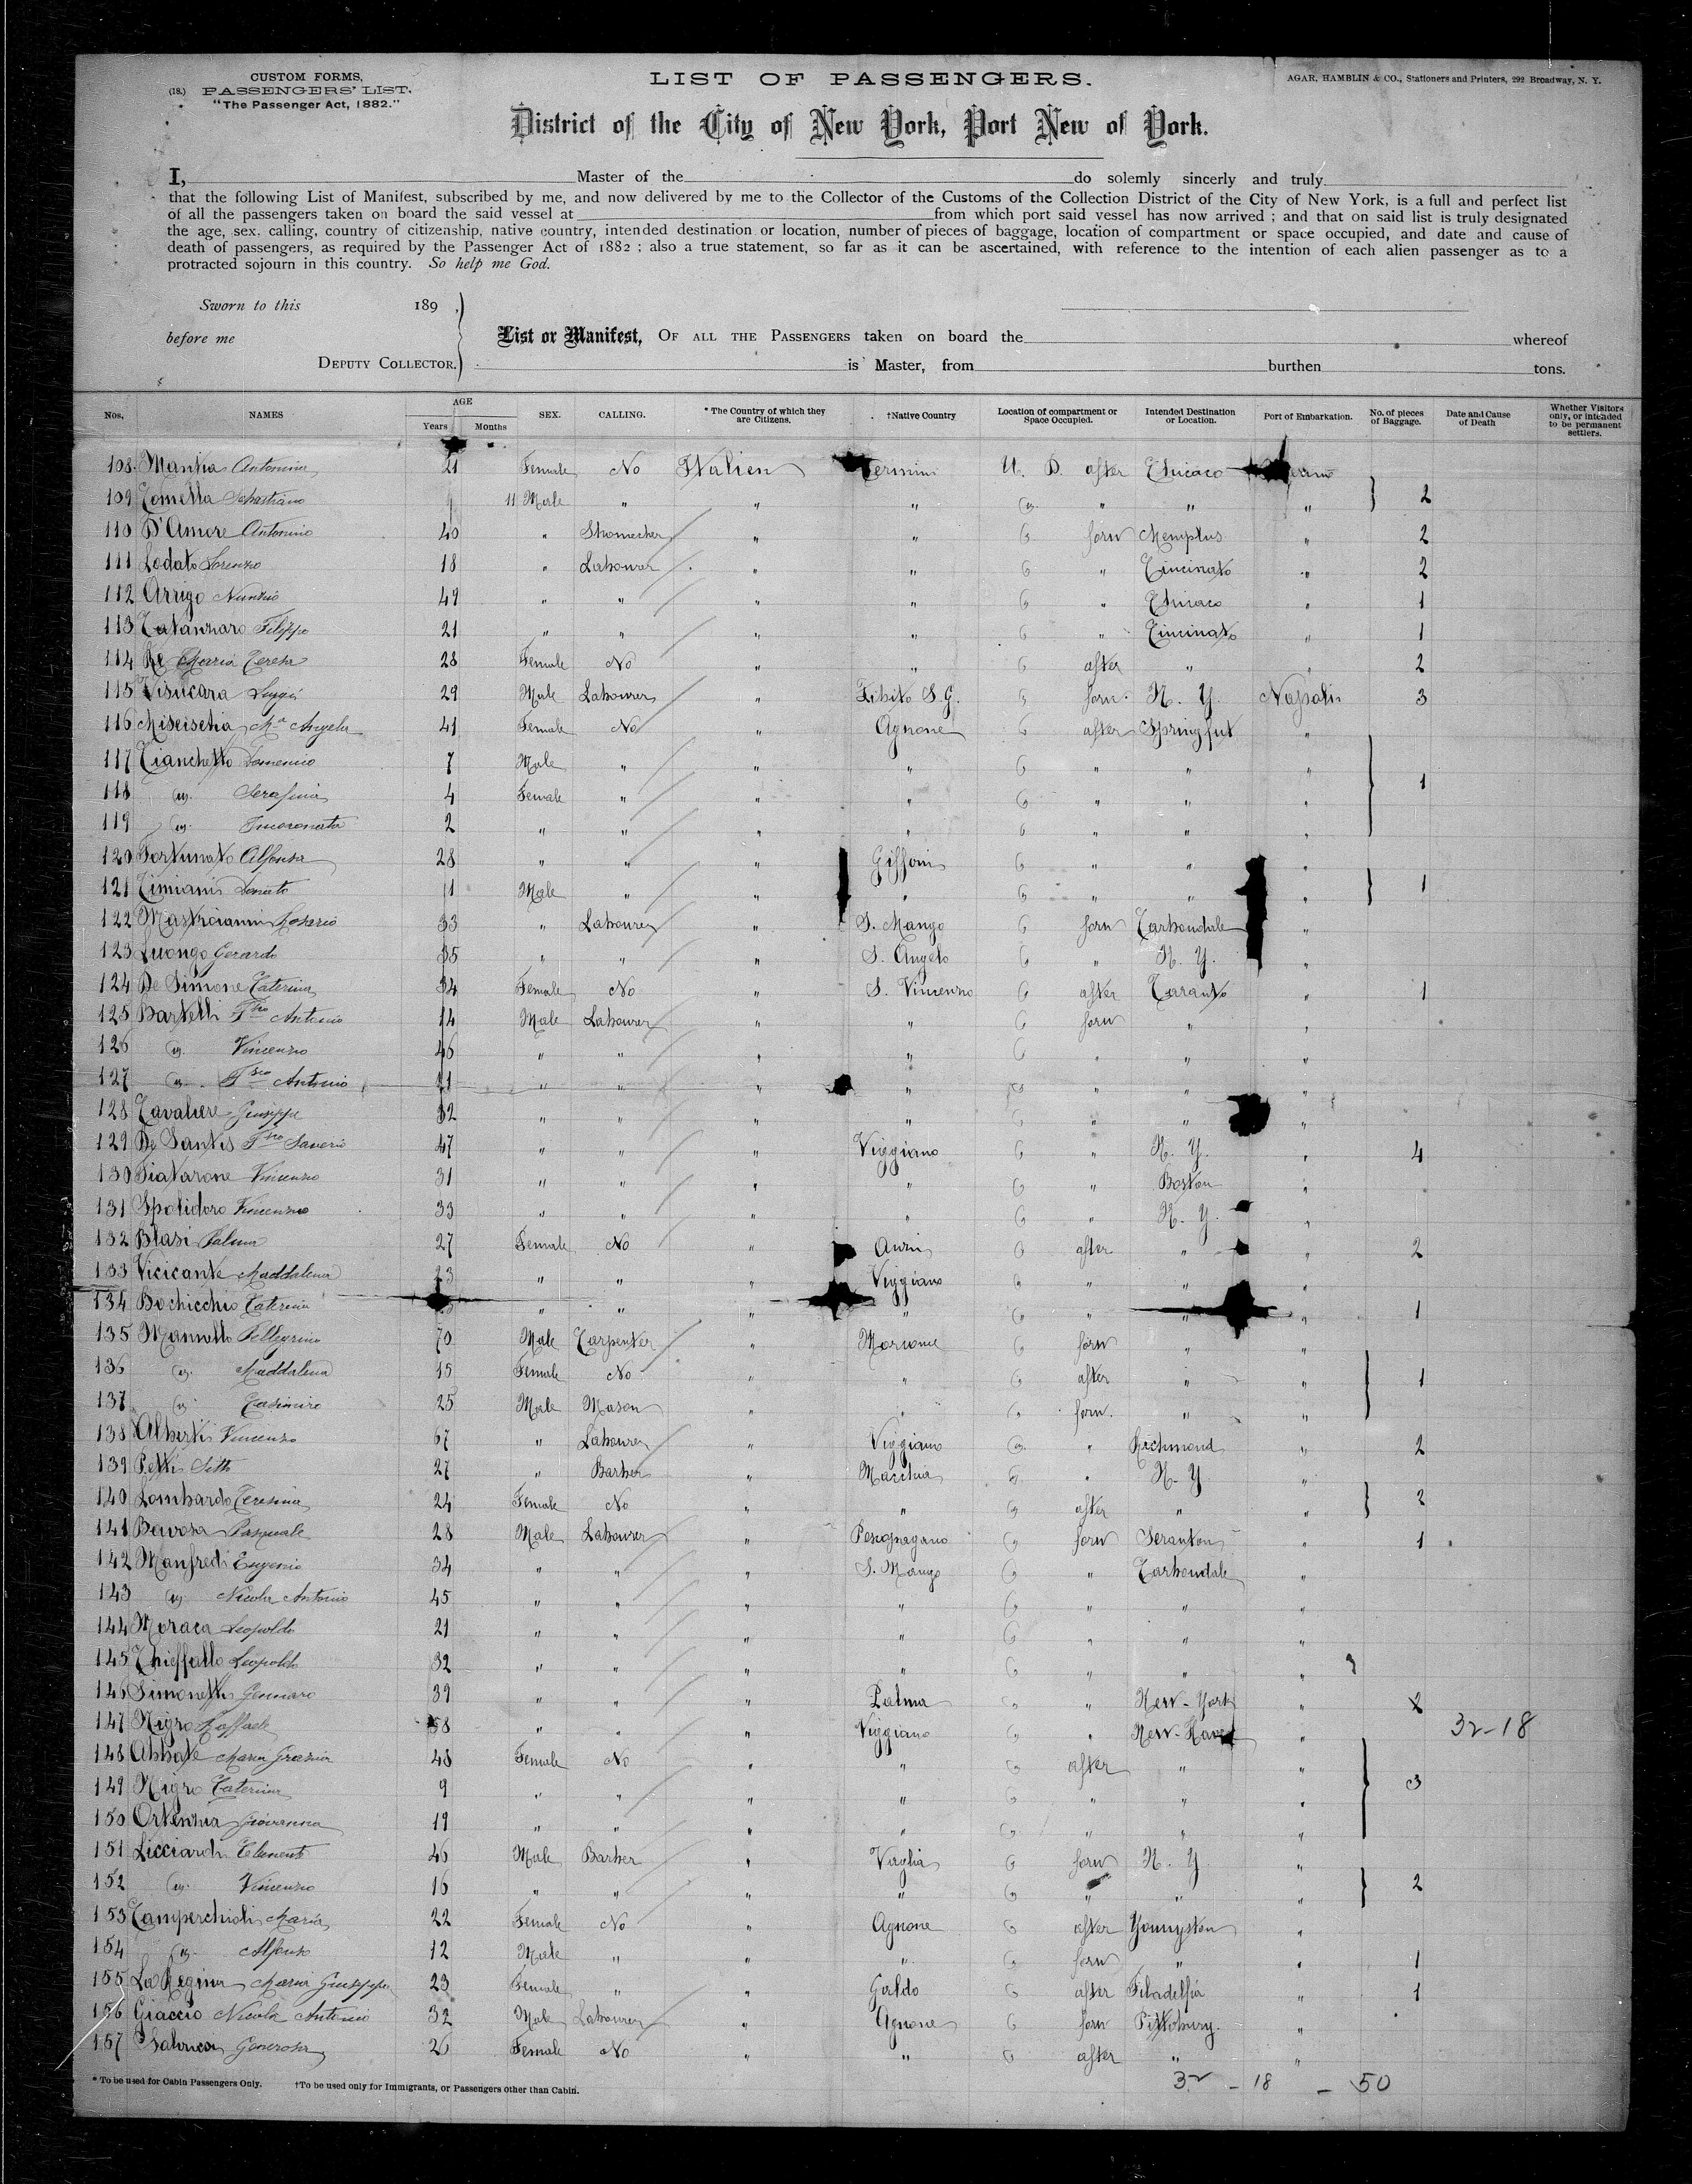 CUSTOM FORMS,
(18.) PASSENGERS' LIST.
"The Passenger Act, 1882."
LIST OF PASSENGERS.
AGAR, HAMBLIN & CO., Stationers and Printers, 292 Broadway, N. Y.
District of the City of New York, Port New of York.
I, Master of the do solemly sincerly and truly
that the following List of Manifest, subscribed by me, and now delivered by me to the Collector of the Customs of the Collection District of the City of New York, is a full and perfect list
of all the passengers taken on board the said vessel at from which port said vessel has now arrived ; and that on said list is truly designated
the age, sex, calling, country of citizenship, native country, intended destination or location, number of pieces of baggage, location of compartment or space occupied, and date and cause of
death of passengers, as required by the Passenger Act of 1882 ; also a true statement, so far as it can be ascertained, with reference to the intention of each alien passenger as to a
protracted sojourn in this country. So help me God.
Sworn to this 189 .
before me
DEPUTY COLLECTOR.
List or Manifest, OF ALL THE PASSENGERS taken on board the whereof
is Master, from burthen tons.
Nos. NAMES AGE Years Months SEX. CALLING. * The Country of which they are Citizens. †Native Country Location of compartment or Space Occupied. Intended Destination or Location. Port of Embarkation. No. of pieces of Baggage. Date and Cause of Death Whether Visitors only, or intended to be permanent settlers.
108 Mantia Antonina 21 Female No Italien Termini U. D. after Chicaco
109 Tomella Sebastiano 11 Male " " " " " " 2
110 D'Amore Antonino 40 " Shomecher " " forw Memphis " 2
111 Lodato Lorenzo 18 " Labourer " " " Cincinato " 2
112 Arrigo Nunzio 49 " " " " " Chicaco " 1
113 Catanzaro Filippo 21 " " " " " Cincinato " 1
114 Re Maria Teresa 28 Female No " " after " " 2
115 Luigi 29 Male Labourer " Tibito S.G. forw. N. Y. Napoli 3
116 Mª Angela 41 Female No " Agnone after "
117 Cianchetto Domenico 7 Male " " " " " "
118 Serafina 4 Female " " " " " " 1
119 Incoronata 2 " " " " " " "
120 Fortunato Alfonsa 28 " " " Giffoni " " "
121 Cimianis Donato 11 Male " " " " " " 1
122 Mastroianni Rosario 33 " Labourer " S. Mango forw Carbondale "
123 Luongo Gerardo 35 " " " S. Angelo " N. Y. "
124 De Simone Caterina 34 Female No " S. Vincenzo after Taranto " 1
125 Bartelli Fsco Antonio 14 Male Labourer " " forw " "
126 Vincenzo 46 " " " " " " "
127 Fsco Antonio 21 " " " " " " "
128 Cavaliere Giuseppe 32 " " " " " " "
129 De Santis Fsco Saverio 47 " " " Viggiano " N. Y. " 4
130 Fiatarone Vincenzo 31 " " " " " Boston "
131 Spolidoro Vincenzo 33 " " " " " N. Y. "
132 Blasi Palma 27 Female No " after " " 2
133 Vicicante Maddalena 23 " " " Viggiano " " "
134 Bochicchio Caterina " " " " " " " 1
135 Mannello Pellegrino 70 Male Carpenter " Morcone forw " "
136 Maddalena 15 Female No " " after " " 1
137 Casimiro 25 Male Mason " " forw. " "
138 Alberti Vincenzo 67 " Labourer " Viggiano " Richmond " 2
139 Petti Setto 27 " Barber " Macchia " N. Y "
140 Lombardo Teresina 24 Female No " " after " " 2
141 Bavosa Pasquale 28 Male Labourer " Pescopagano forw Scranton " 1
142 Manfredi Eugenio 34 " " " S. Mango " Carbondale "
143 Nicola Antonio 45 " " " " " " "
144 Moraca Leopoldo 21 " " " " " " "
145 Chieffallo Leopoldo 32 " " " " " " "
146 Simonetti Gennaro 39 " " " Palma " New-York " 2
147 Nigro Raffaele 58 " " " Viggiano " New-Haven " 32-18
148 Abbate Maria Grazia 48 Female No " " after " "
149 Nigro Caterina 9 " " " " " " " 3
150 Ortenzia Giovanna 19 " " " " " " "
151 Licciardi Clemente 46 Male Barber " Viaglia forw N. Y. "
152 Vincenzo 16 " " " " " " " 2
153 Camperchioli Maria 22 Female No " Agnone after Youngston "
154 Alfonso 12 Male " " " forw " " 1
155 La Regina Maria Giuseppa 23 Female " " Galdo after Filadelfia " 1
156 Giaccio Nicola Antonio 32 Male Labourer " Agnone forw Pittsburg. "
157 Generosa 26 Female No " " after " "
* To be used for Cabin Passengers Only. †To be used only for Immigrants, or Passengers other than Cabin.
32 - 18 - 50